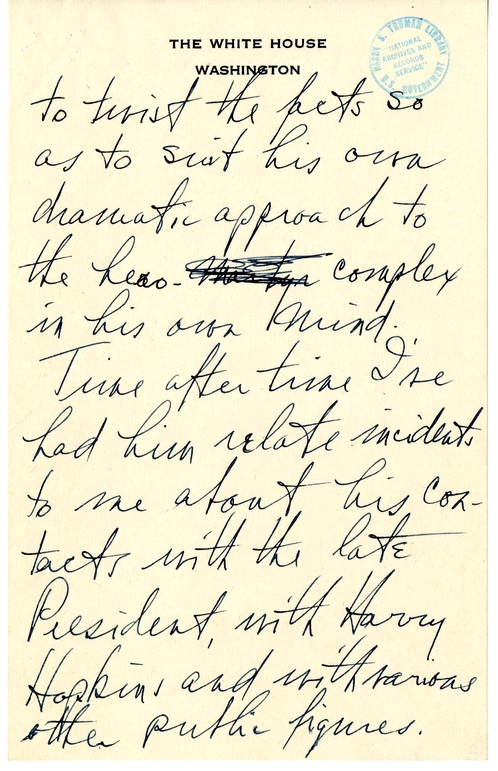 THE WHITE HOUSE
WASHINGTON
HARRY S. TRUMAN LIBRARY
"NATIONAL
ARCHIVES AND
RECORDS
SERVICE"
U.S. GOVERNMENT
to twist the facts so
as to suit his own
dramatic approach to
the hero- complex
in his own mind.
Time after time I've
had him relate incidents
to me about his con-
tacts with the late
President, with Harry
Hopkins and with various
other public figures.